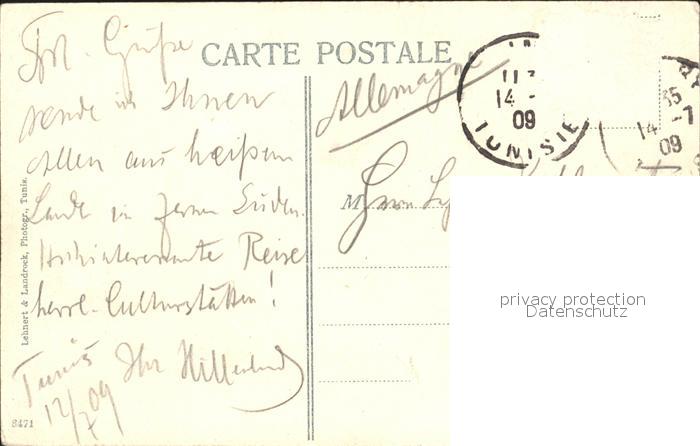 CARTE POSTALE
Frl. Grüße
sende ich Ihnen
Allen aus heißem
Lande im fernen Süden.
Hochinteressante Reise
herrl. Culturstätten!
Ihr
Tunis
12/7 09
Allemagne
M
Herrn
14 -
09
TUNISIE
35
14 -7
09
privacy protection
Datenschutz
Lehnert & Landrock, Photogr., Tunis.
8471